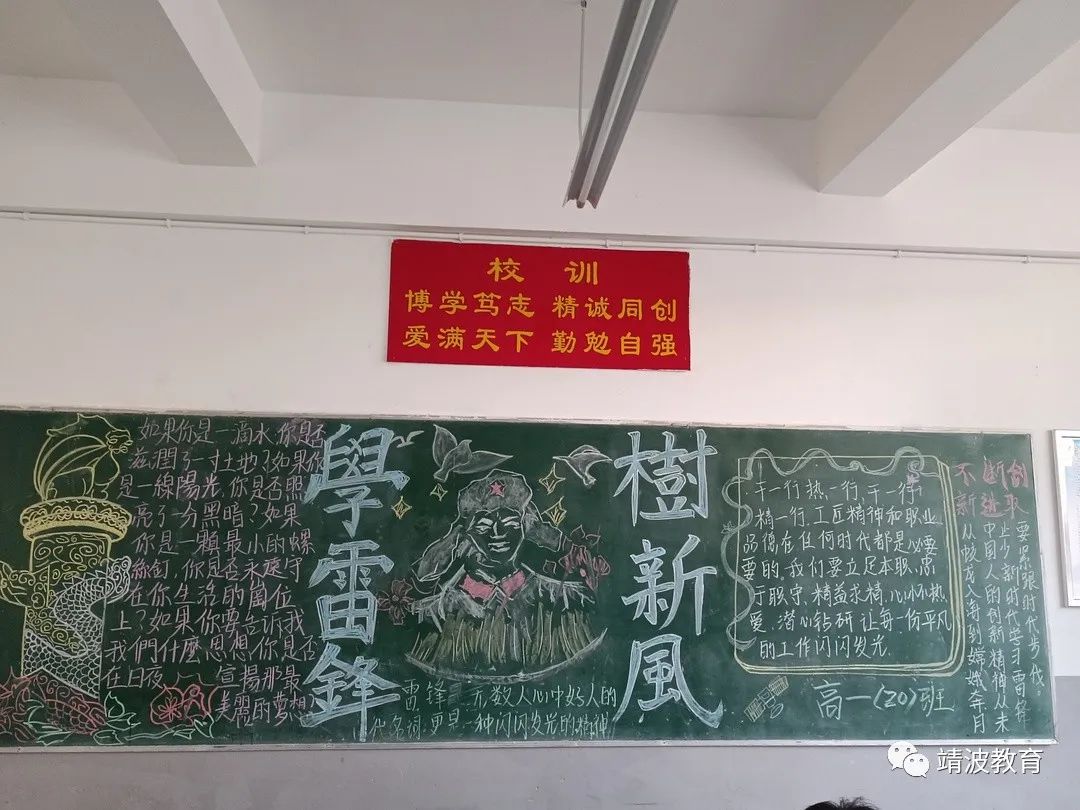 校 训
博学笃志 精诚同创
爱满天下 勤勉自强
如果你是一滴水,你是否
滋潤了一寸土地?如果你
是一線陽光,你是否照
亮了一分黑暗?如果
你是一顆最小的螺
絲釘,你是否永遠守
在你生活的崗位
上?如果你要告訴我
我們什麼思想,你是否
在日夜 宣揚那最
美麗的夢想
學雷鋒
雷锋 无数人心中好人的
代名词,更是一种闪闪发光的精神
樹新風
干一行热一行,干一行
精一行,工匠精神和职业
品德在任何时代都是必要
要的。我们要立足本职,忠
于职守,精益求精,心怀热
爱,潜心钻研,让每一份平凡
的工作闪闪发光
高一(20)班
不断创
新进取
要紧跟时代步伐。
业少,新时代学习雷锋
中国人的创新精神从未
从蛟龙入海到嫦娥奔月
靖波教育